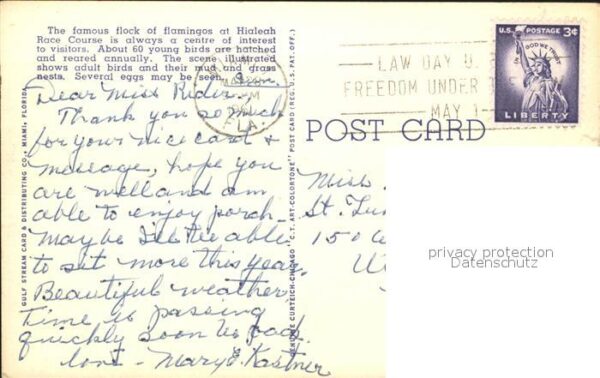 The famous flock of flamingos at Hialeah
Race Course is always a centre of interest
to visitors. About 60 young birds are hatched
and reared annually. The scene illustrated
shows adult birds and their mud and grass
nests. Several eggs may be seen.
Dear Miss Rider.
Thank you so much
for your nice card &
message, hope you
are well and am
able to enjoy porch.
Maybe I'll be able
to set more this year.
Beautiful weather
Time is passing
quickly soon be back.
love - Mary E. Kastner
GULF STREAM CARD & DISTRIBUTING CO., MIAMI, FLORIDA
GENUINE CURTEICH-CHICAGO "C.T. ART-COLORTONE" POST CARD (REG. U.S. PAT. OFF.)
POST CARD
LAW DAY U.
FREEDOM UNDER
MAY 1
PM
LA.
U.S. POSTAGE 3¢
IN GOD WE TRUST
LIBERTY
Miss
St. Lu
150
W
privacy protection
Datenschutz